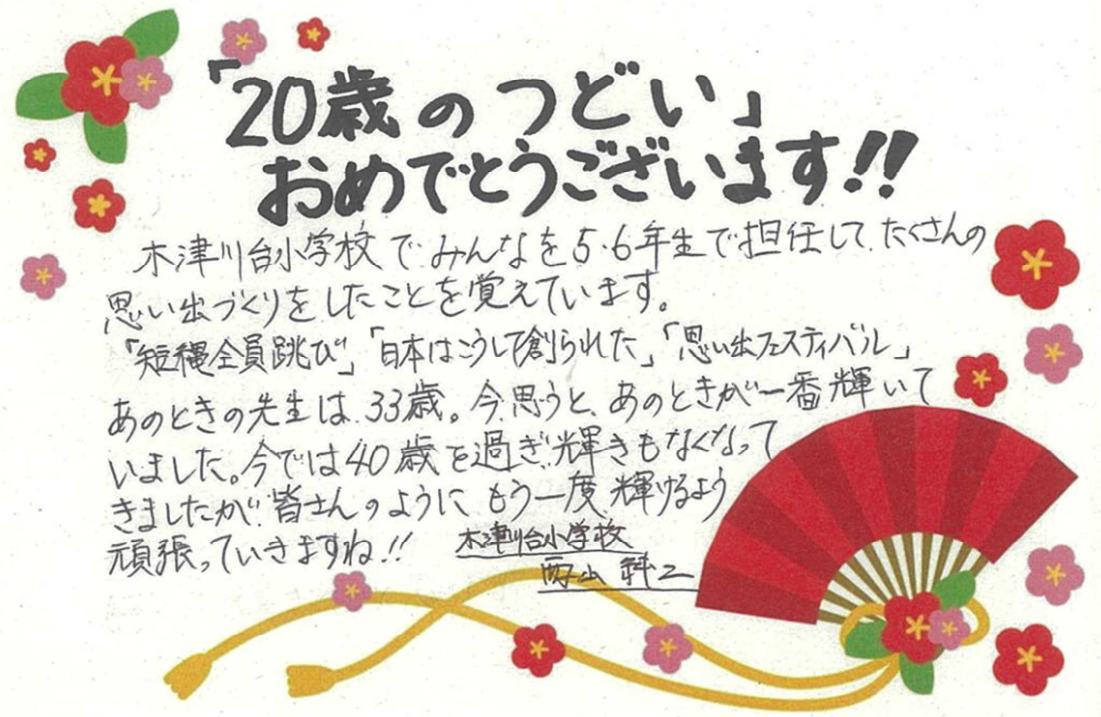 「20歳のつどい」
おめでとうございます!!
木津川台小学校で、みんなを5・6年生で担任して、たくさんの
思い出づくりをしたことを覚えています。
「短縄全員跳び」「日本はこうして創られた」「思い出フェスティバル」
あのときの先生は、33歳。今思うと、あのときが一番輝いて
いました。今では40歳を過ぎ、輝きもなくなって
きましたが、皆さんのように、もう一度、輝けるよう
頑張っていきますね!!
木津川台小学校
西山